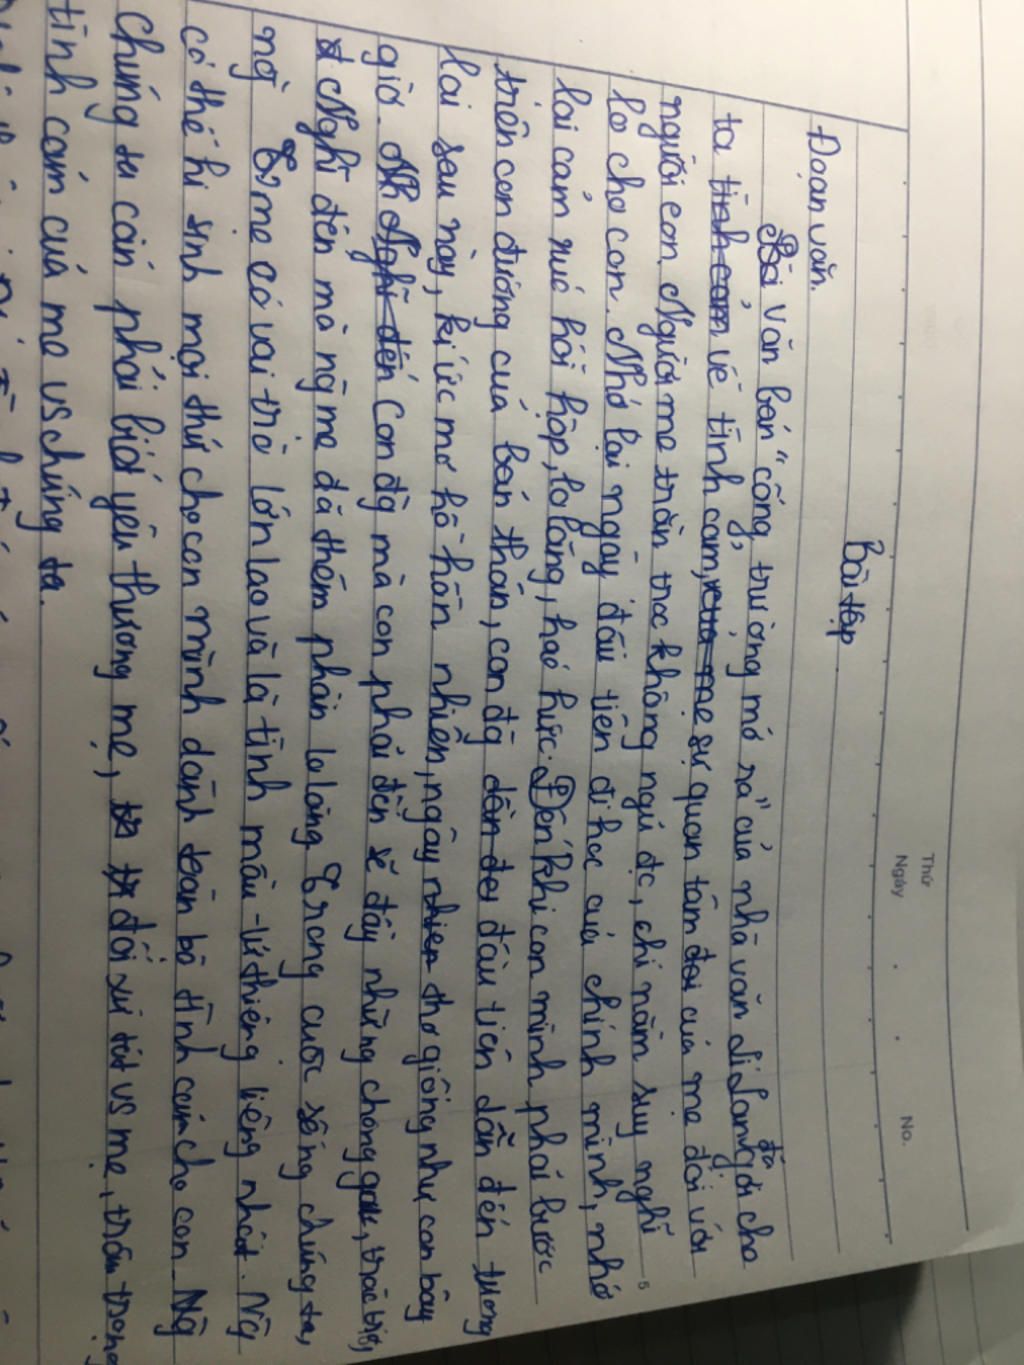 Thứ
Ngày
No.
Bài tập
Đoạn văn.
văn bản "cổng trường mở ra" của nhà văn Lí Lan đã gợi cho
ta tình cảm về tình cảm, của mẹ sự quan tâm của mẹ đối với
người con. Người mẹ trằn trọc không ngủ đc, chỉ nằm suy nghĩ
lo cho con. Nhớ lại ngày đầu tiên đi học của chính mình, nhớ
lại cảm xúc hồi hộp, lo lắng, háo hức. Đến khi con mình phải bước
trên con đường của bản thân, con đg đầu tiên dẫn đến tương
lai sau này, kí ức mơ hồ hồn nhiên, ngây thơ giống như con bây
giờ. Nghĩ đến con đg mà con phải đến sẽ đầy những chông gai,
Nghĩ đến mà ng mẹ đã thêm phần lo lắng. Trong cuộc sống chúng ta,
ng mẹ có vai trò lớn lao và là tình mẫu tử thiêng liêng nhất. Ng
có thể hi sinh mọi thứ cho con mình dành toàn bộ tình cảm cho con. Ng
chúng ta cần phải biết yêu thương mẹ, đối xử tốt vs mẹ, trân trọng
tình cảm của mẹ vs chúng ta.